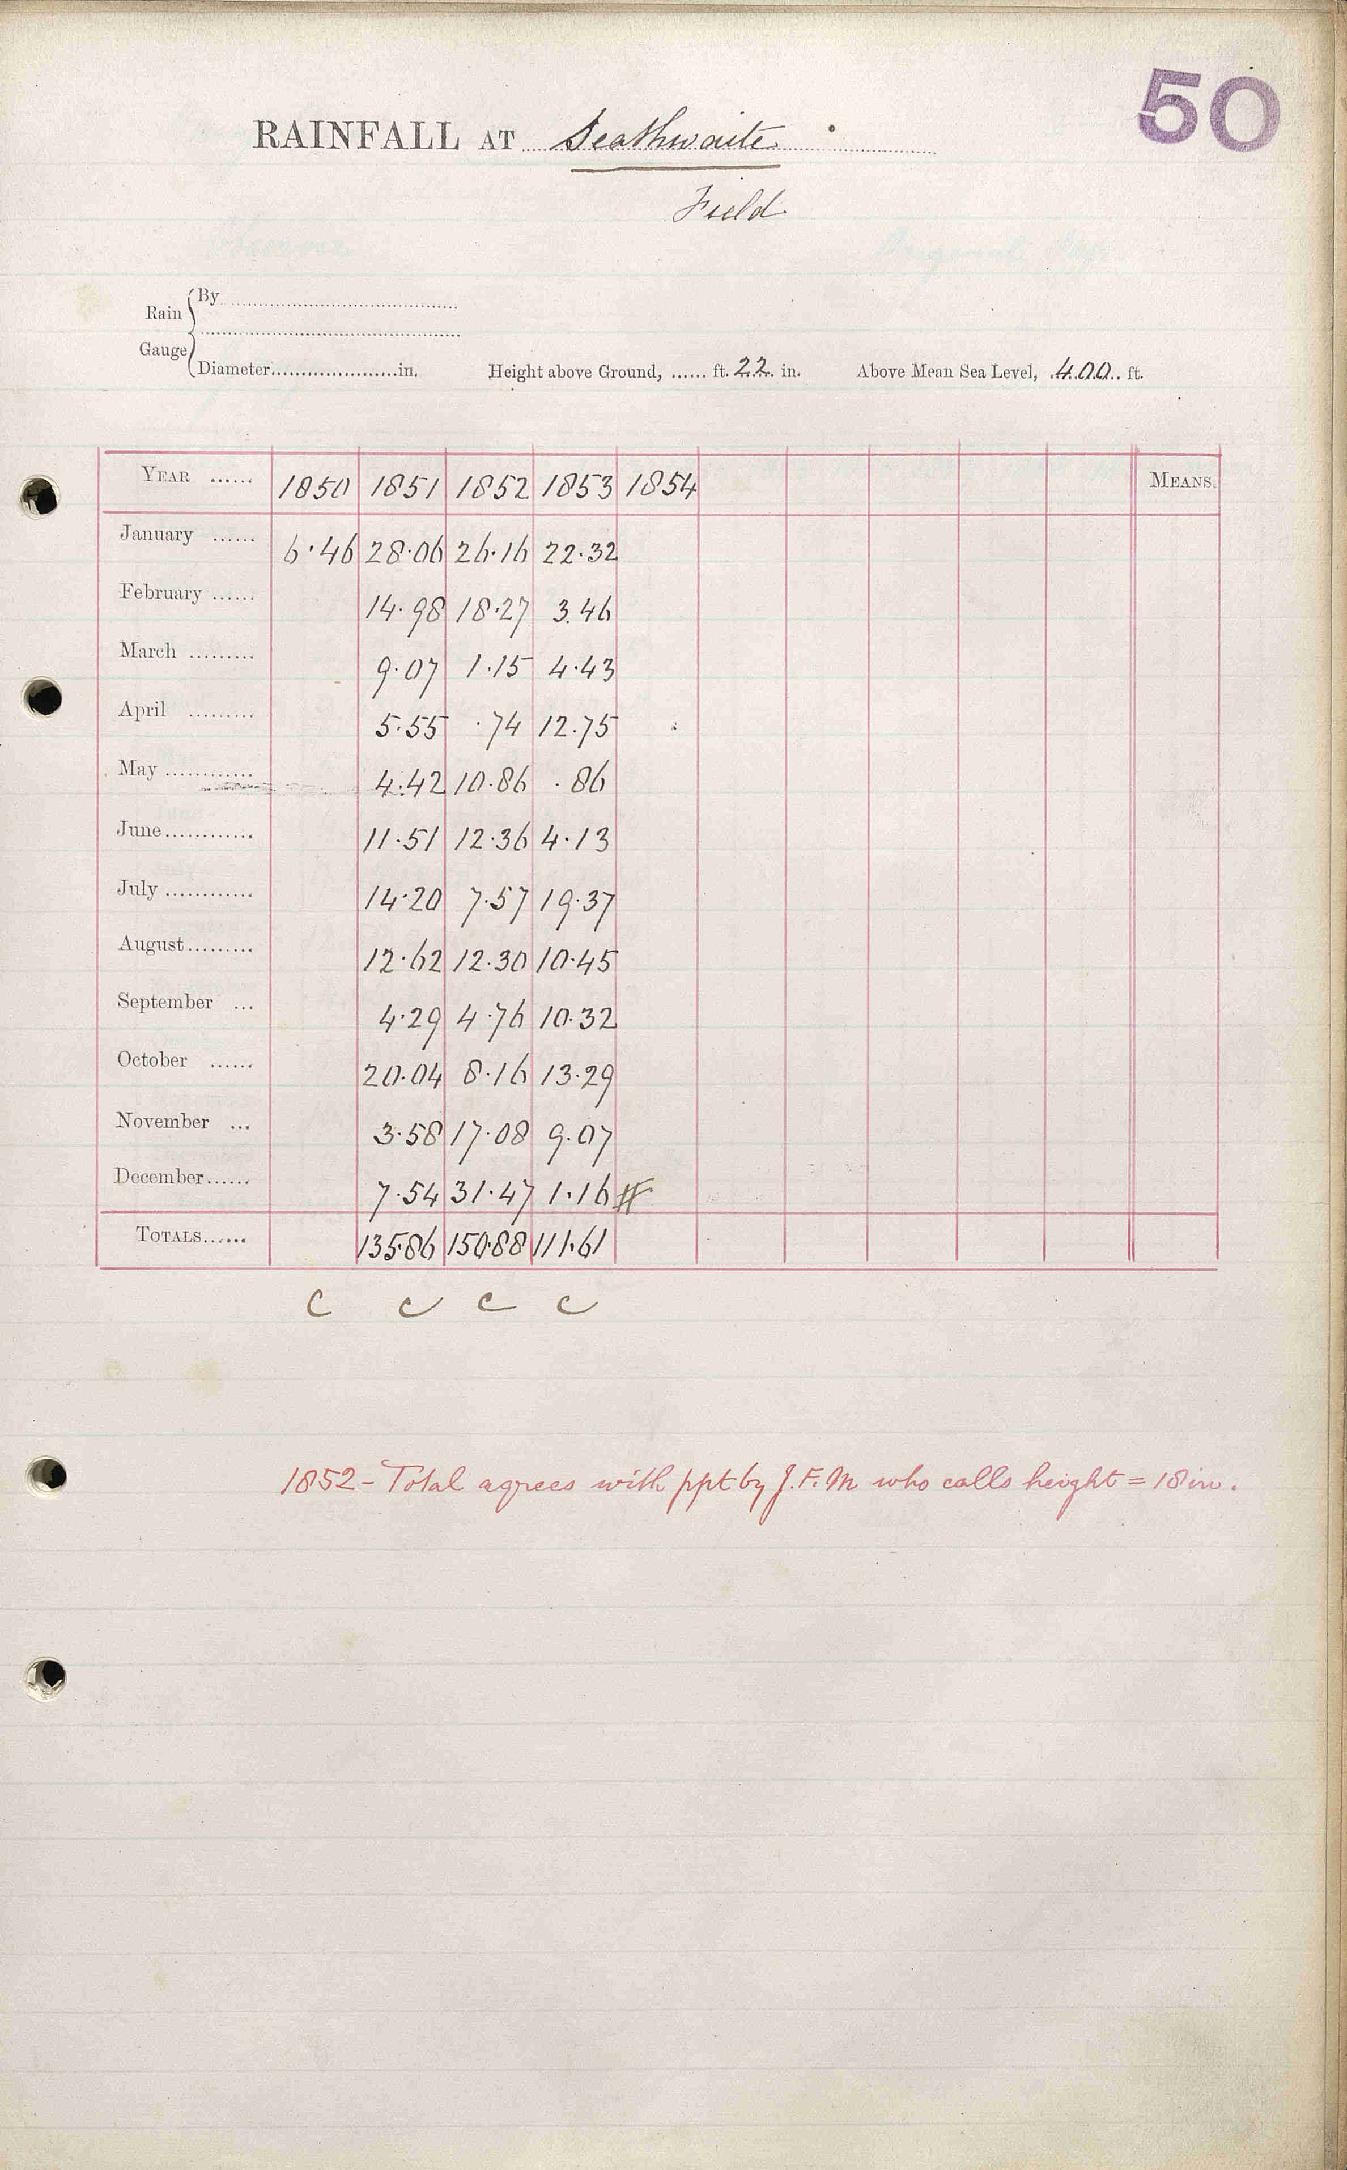 50
RAINFALL AT Seathwaite
Field
Rain Gauge { By
Diameter in. Height above Ground, ft. 22 in. Above Mean Sea Level, 400 ft.
YEAR 1850 1851 1852 1853 1854 MEANS.
January 6.46 28.06 26.16 22.32
February 14.98 18.27 3.46
March 9.07 1.15 4.43
April 5.55 .74 12.75
May 4.42 10.86 .86
June 11.51 12.36 4.13
July 14.20 7.57 19.37
August 12.62 12.30 10.45
September 4.29 4.76 10.32
October 20.04 8.16 13.29
November 3.58 17.08 9.07
December 7.54 31.47 1.16 #
TOTALS 135.86 150.88 111.61
C C C C
1852 - Total agrees with ppt by J.F.M who calls height = 18 in.